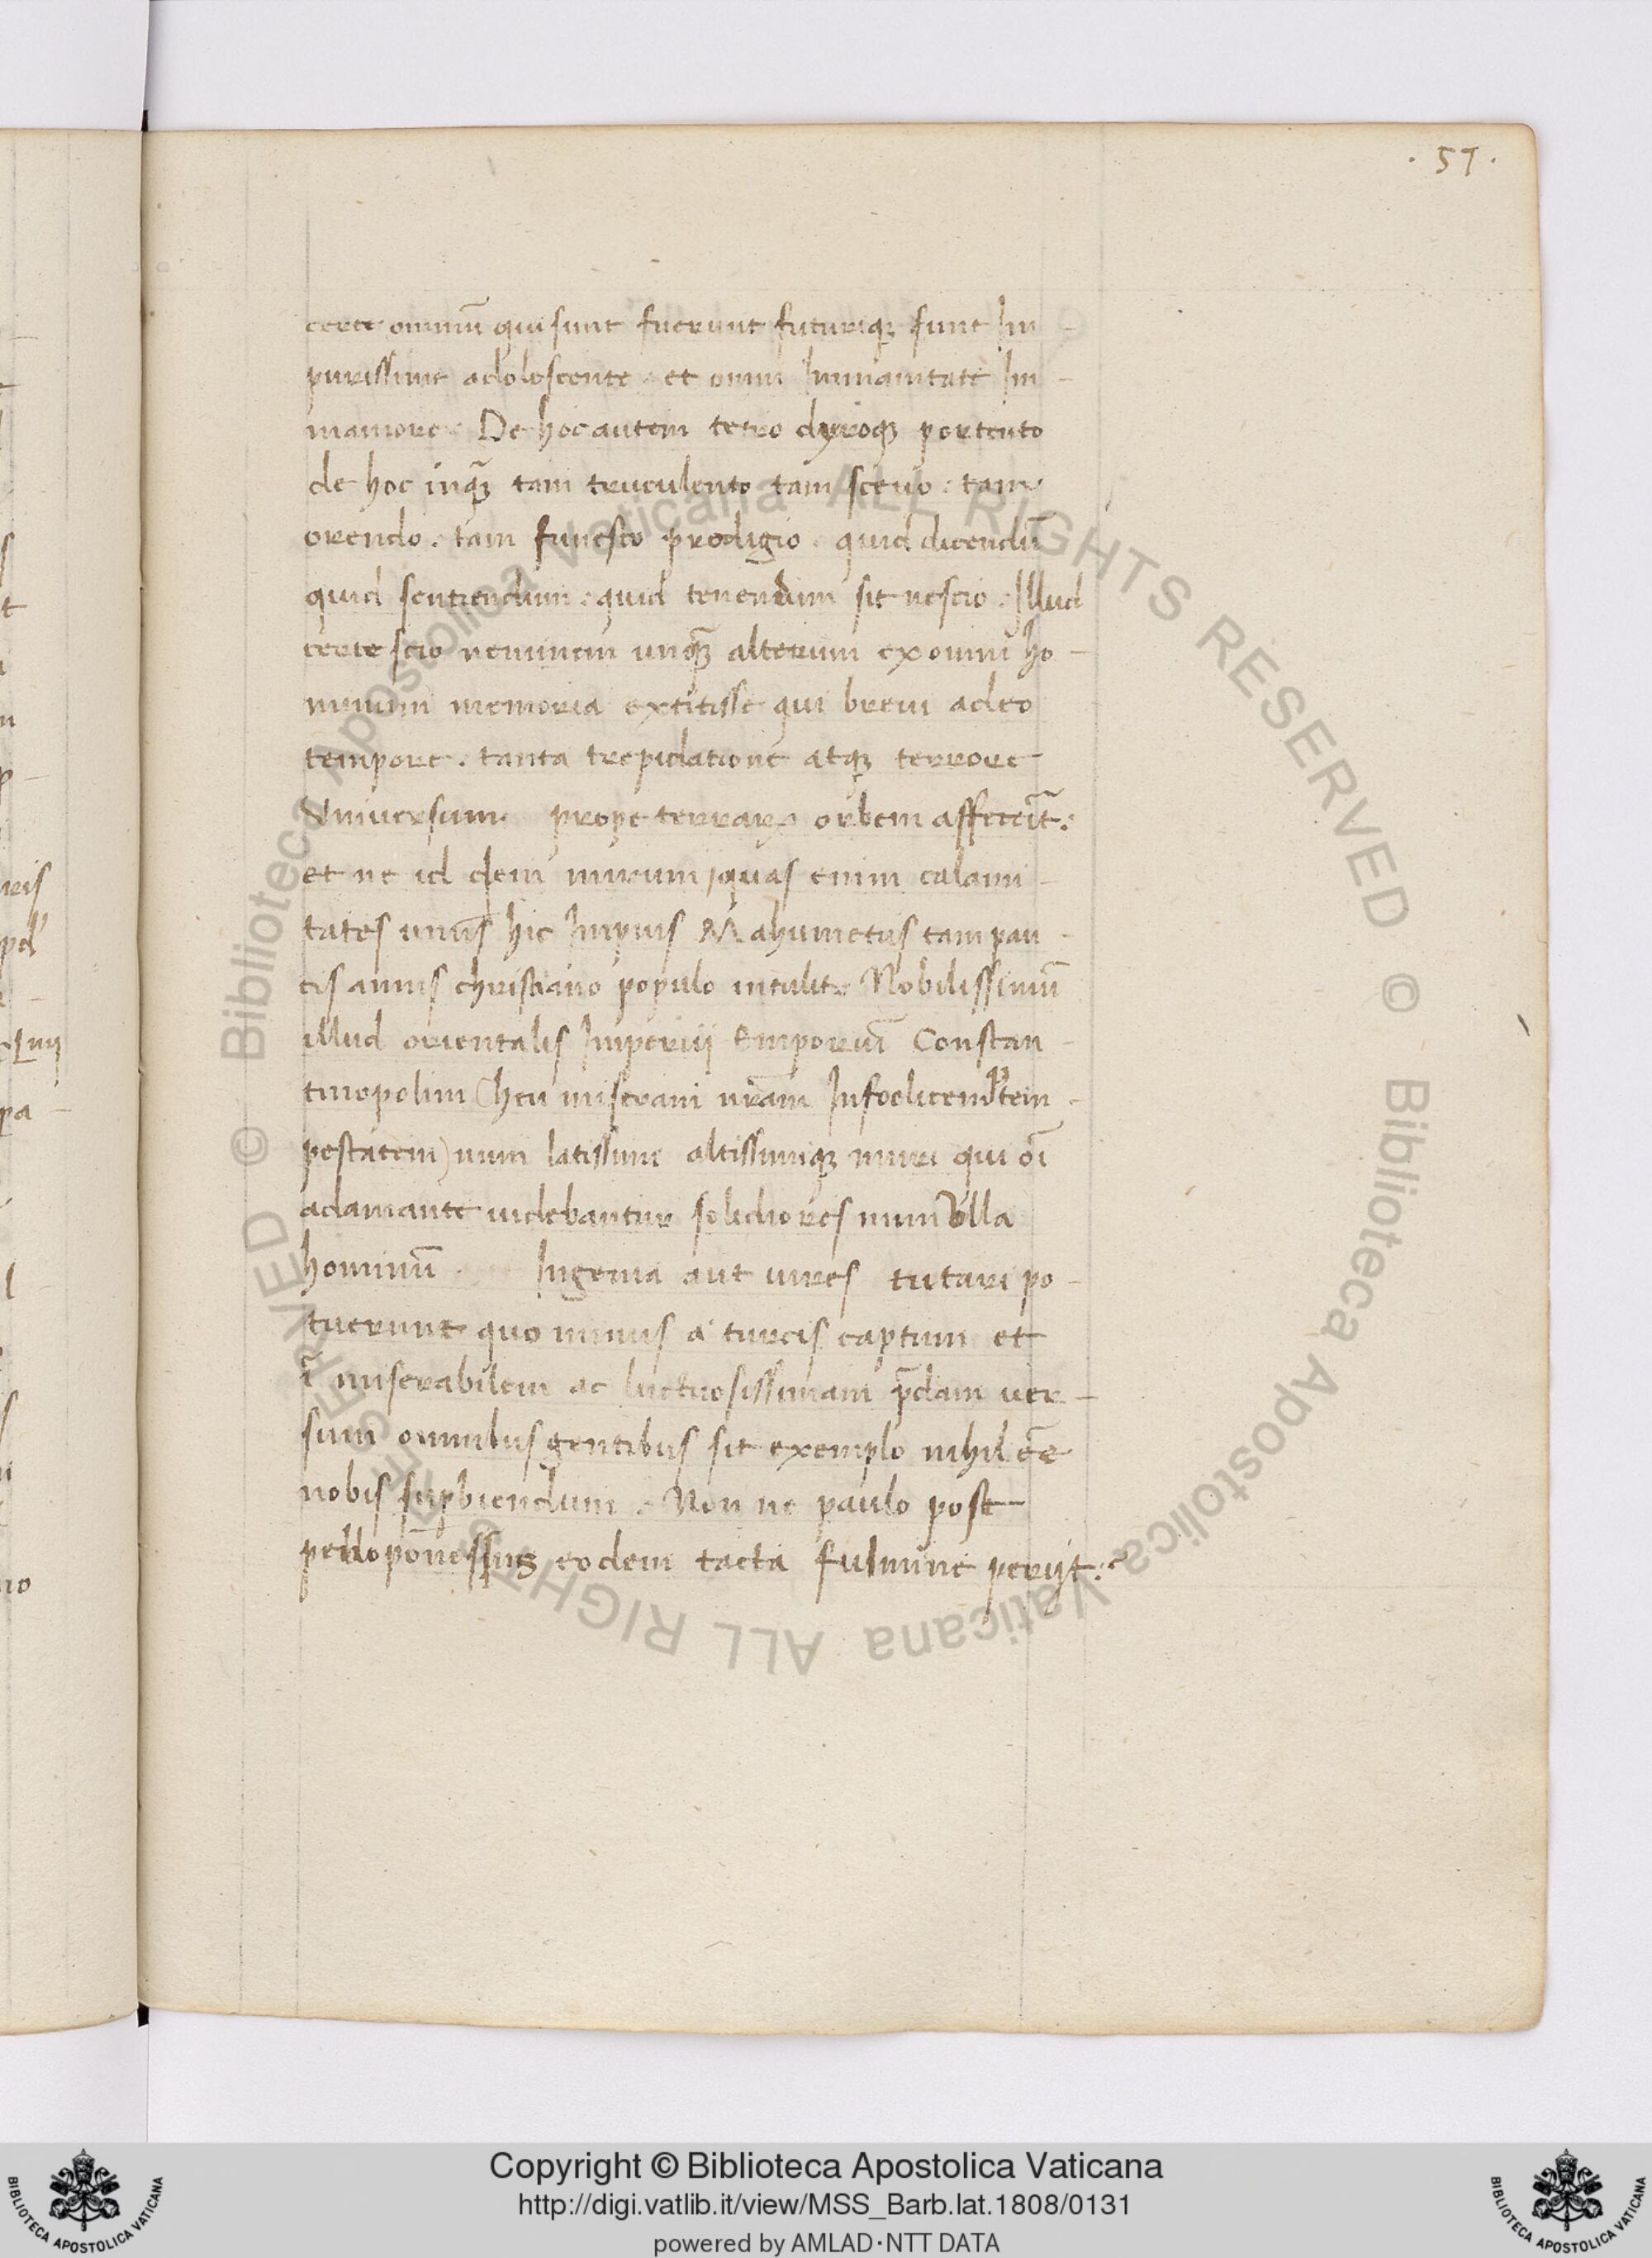 . 57 .
certe omniũ qui sunt fuerunt futuriq; sunt Im-
purissime adoloscente . et omni humanitate Im-
mamore . De hoc autem tetro dyroq; portento
de hoc inquã tam truculento tam scevo . tam
orendo . tam funesto prodigio . quid dicendũ
quid sentiendum . quid tenendum sit nescio . Illud
certe scio neminem unquã alterum ex omni ho-
minum memoria extitisse qui brevi adeo
tempore . tanta trepidatione atq; terrore
Universum prope terrarꝝ orbem affecerĩt :
et ne id dem mirum / quas enim calami-
tates unus hic Impius Mahumetus tam pau-
cis annis christiano populo intulit . Nobilissimũ
illud orientalis Imperij Emporiũ Constan-
tinopolim (heu miseram nrãm Infoelicemq; tem-
pestatem) num latissimi altissimiq; muri qui oĩ
adamante uidebantur solidiores num Vlla
hominũ Ingenia aut uires tutari po-
tuerunt quo minus a turcis captum et
ĩ miserabilem ac luctuosissimam p̃dam uer-
sum omnibus gentibus sit exemplo nihil eẽ
nobis supbiendum . Non ne paulo post
pelloponessus eodem tacta fulmine perijt :
Copyright © Biblioteca Apostolica Vaticana
http://digi.vatlib.it/view/MSS_Barb.lat.1808/0131
powered by AMLAD·NTT DATA
BIBLIOTECA APOSTOLICA VATICANA
BIBLIOTECA APOSTOLICA VATICANA
© Biblioteca Apostolica Vaticana ALL RIGHTS RESERVED © Biblioteca Apostolica Vaticana ALL RIGHTS RESERVED